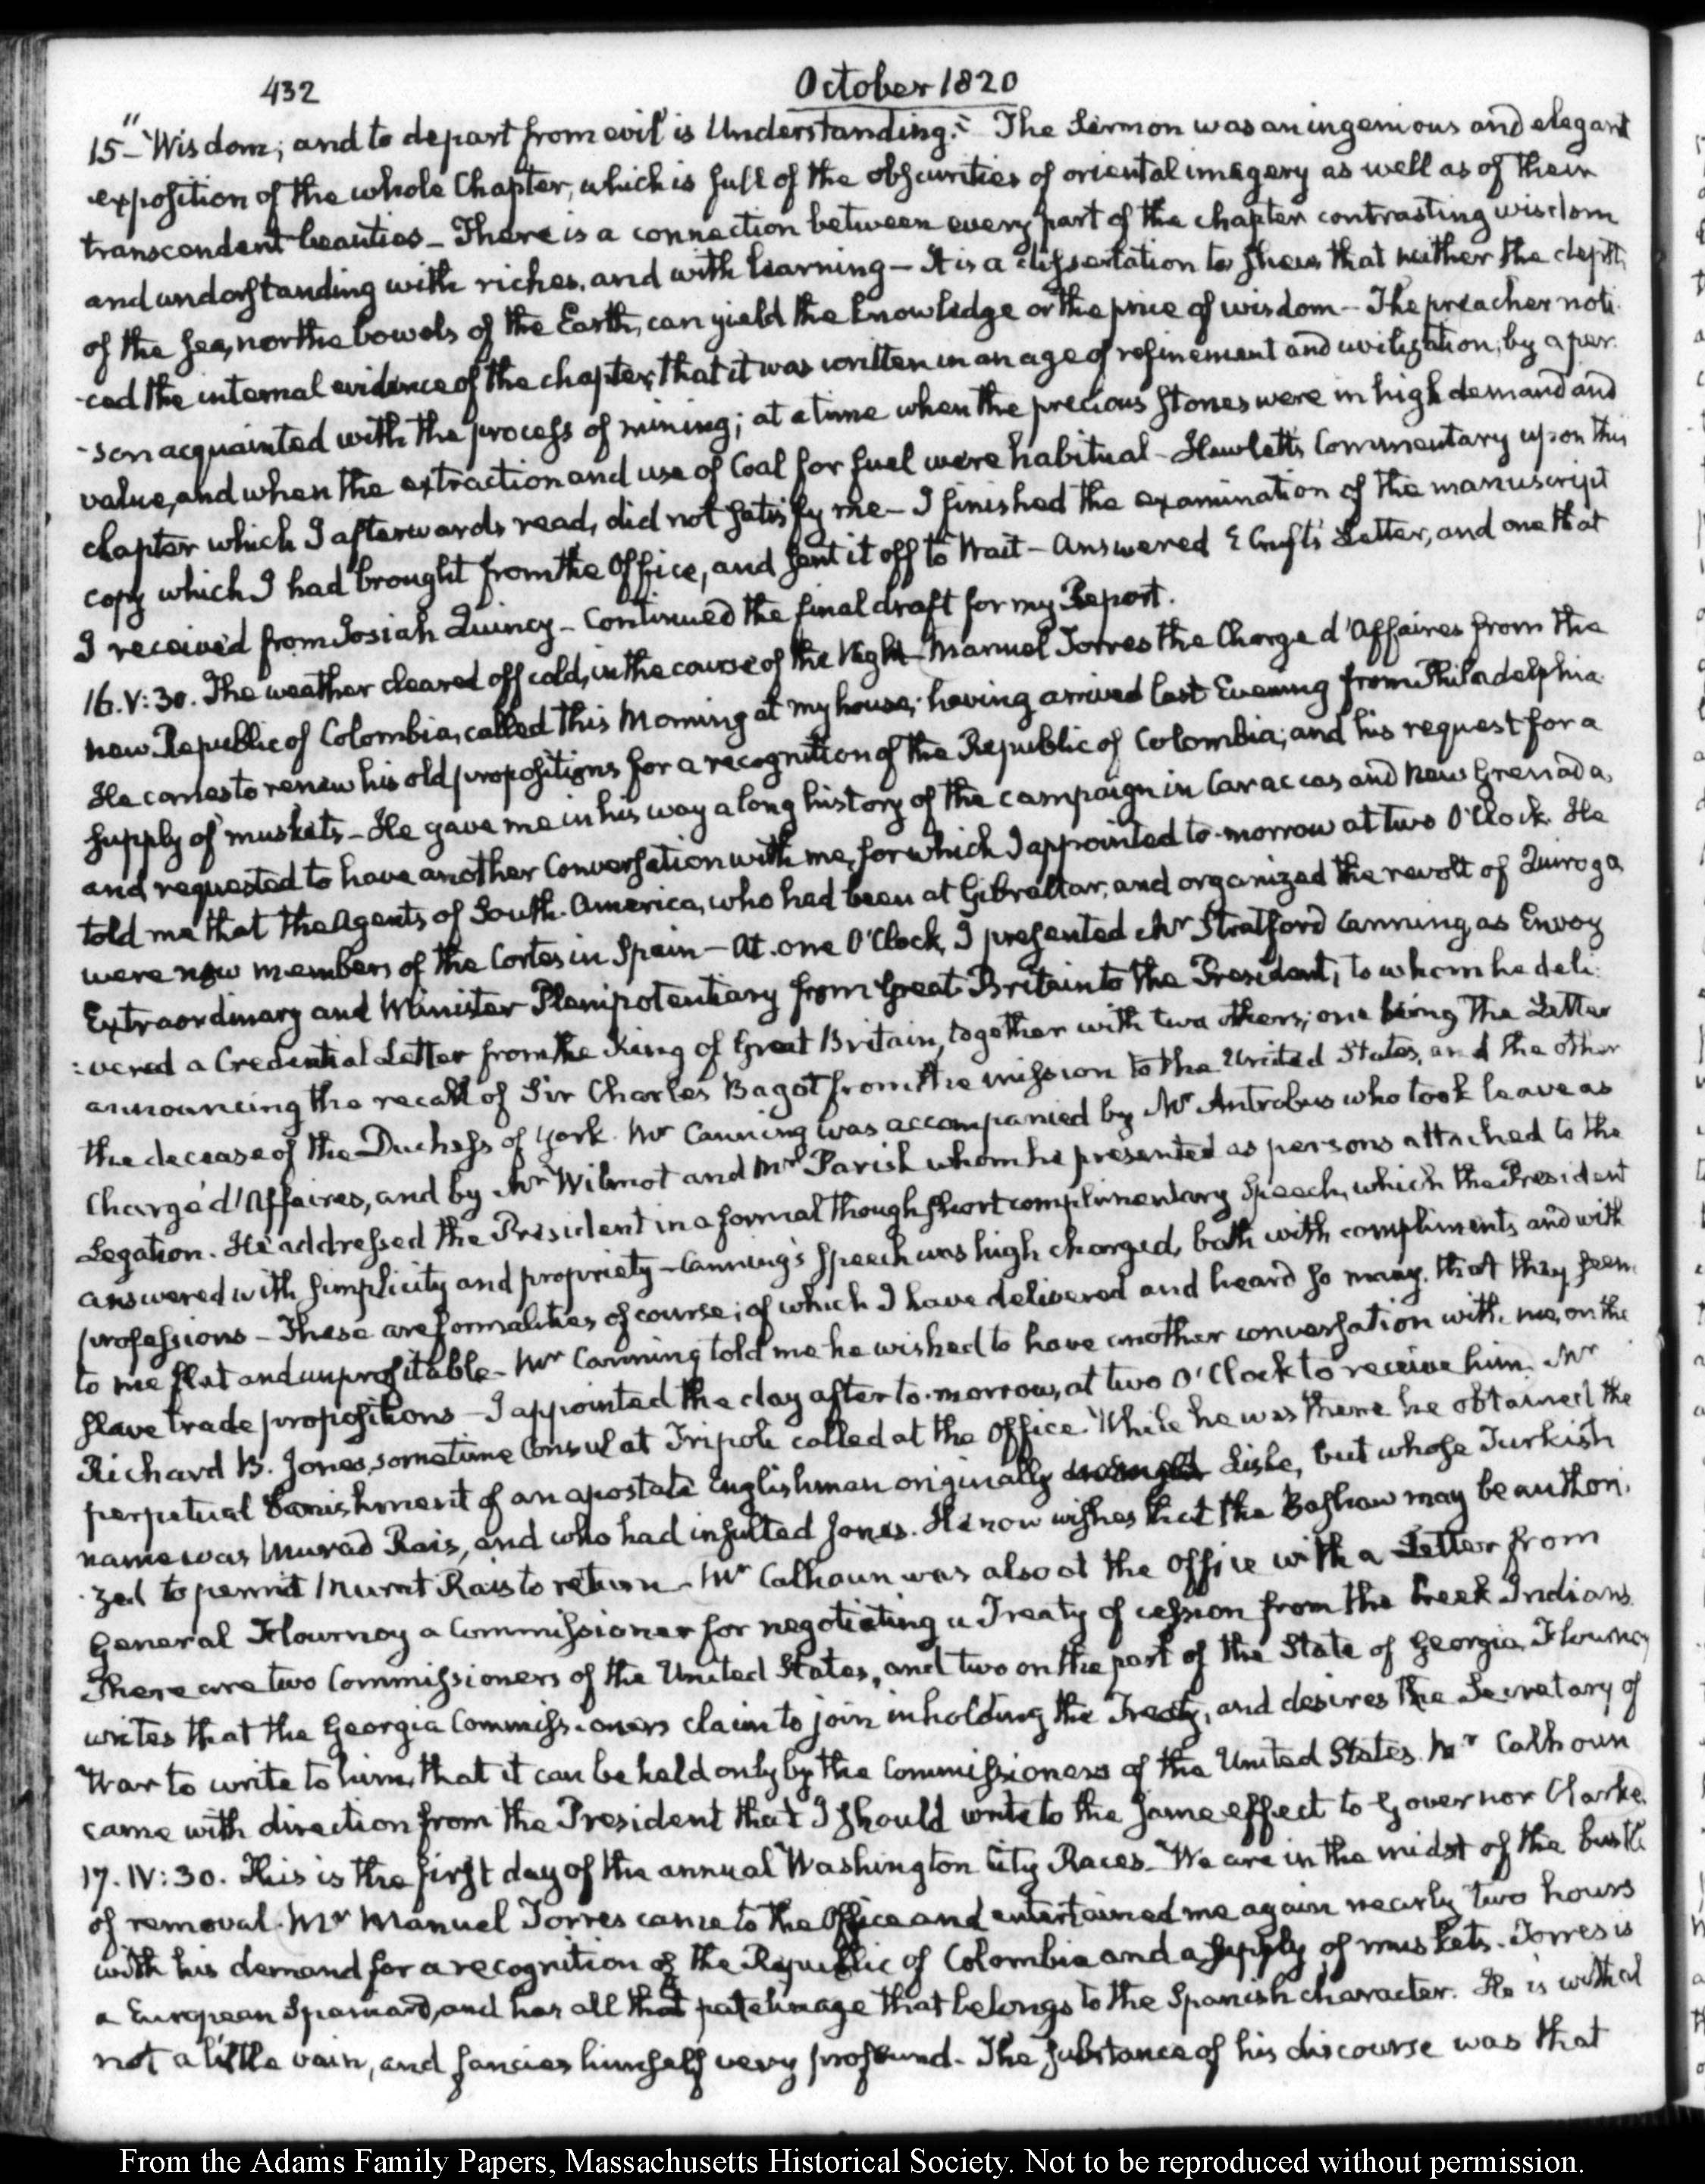 432
October 1820
15 — "Wisdom; and to depart from evil is Understanding." The Sermon was an ingenious and elegant
exposition of the whole Chapter, which is full of the obscurities of oriental imagery as well as of their
transcendent beauties — There is a connection between every part of the chapter contrasting wisdom
and understanding with riches, and with learning — It is a dissertation to shew that neither the depth
of the sea, nor the bowels of the Earth, can yield the knowledge or the price of wisdom — The preacher noti-
-ced the internal evidence of the chapter, that it was written in an age of refinement and civilization, by a per-
-son acquainted with the process of mining; at a time when the precious stones were in high demand and
value, and when the extraction and use of Coal for fuel were habitual — Hewlett's Commentary upon this
chapter which I afterwards read, did not satisfy me — I finished the examination of the manuscript
copy which I had brought from the Office, and sent it off to Wait — Answered E Crufts' Letter, and one that
I received from Josiah Quincy — Continued the final draft for my Report.
16. V:30. The weather cleared off cold, in the course of the Night — Manuel Torres the Chargé d'Affaires from the
new Republic of Colombia, called this Morning at my house; having arrived last Evening from Philadelphia.
He comes to renew his old propositions for a recognition of the Republic of Colombia; and his request for a
supply of muskets — He gave me in his way a long history of the campaign in Caraccas and New Grenada,
and requested to have another Conversation with me, for which I appointed to-morrow at two O'Clock. He
told me that the Agents of South-America, who had been at Gibraltar, and organized the revolt of Quiroga,
were now members of the Cortes in Spain — At one O'Clock, I presented Mr Stratford Canning as Envoy
Extraordinary and Minister Plenipotentiary from Great-Britain to the President, to whom he deli-
:vered a Credential Letter from the King of Great Britain, together with two others; one being the Letter
announcing the recall of Sir Charles Bagot from the mission to the United States, and the other
the decease of the Duchess of York. Mr Canning was accompanied by Mr Antrobus who took leave as
Chargé d'Affaires, and by Mr Wilmot and Mr Parish whom he presented as persons attached to the
Legation. He addressed the President in a formal though short complimentary Speech, which the President
answered with simplicity and propriety — Canning's speech was high charged, both with compliments and with
professions — These are formalities of course; of which I have delivered and heard so many, that they seem
to me flat and unprofitable — Mr Canning told me he wished to have another conversation with me, on the
slave trade propositions — I appointed the day after to-morrow, at two O'Clock to receive him. Mr
Richard B. Jones, sometime Consul at Tripoli called at the Office. While he was there he obtained the
perpetual banishment of an apostate Englishman originally Lisle, but whose Turkish
name was Murad Rais, and who had insulted Jones. He now wishes that the Bashaw may be authori-
-zed to permit Murat Rais to return — Mr Calhoun was also at the Office with a Letter from
General Flournoy a Commissioner for negotiating a Treaty of cession from the Creek Indians.
There are two Commissioners of the United States, and two on the part of the State of Georgia. Flournoy
writes that the Georgia Commissioners claim to join in holding the Treaty, and desires the Secretary of
War to write to him, that it can be held only by the Commissioners of the United States. Mr Calhoun
came with direction from the President that I should write to the same effect to Governor Clarke.
17. IV:30. This is the first day of the annual Washington City Races — We are in the midst of the bustle
of removal. Mr Manuel Torres came to the Office and entertained me again nearly two hours
with his demand for a recognition of the Republic of Colombia and a supply of muskets. Torres is
a European Spaniard, and has all that patelinage that belongs to the Spanish character. He is withal
not a little vain, and fancies himself very profound — The substance of his discourse was that
From the Adams Family Papers, Massachusetts Historical Society. Not to be reproduced without permission.